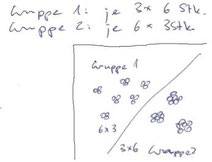 Gruppe 1: je 3x 6 Stk.
Gruppe 2: je 6 x 3 Stk
Gruppe 1
6x3
3x6 Gruppe 2